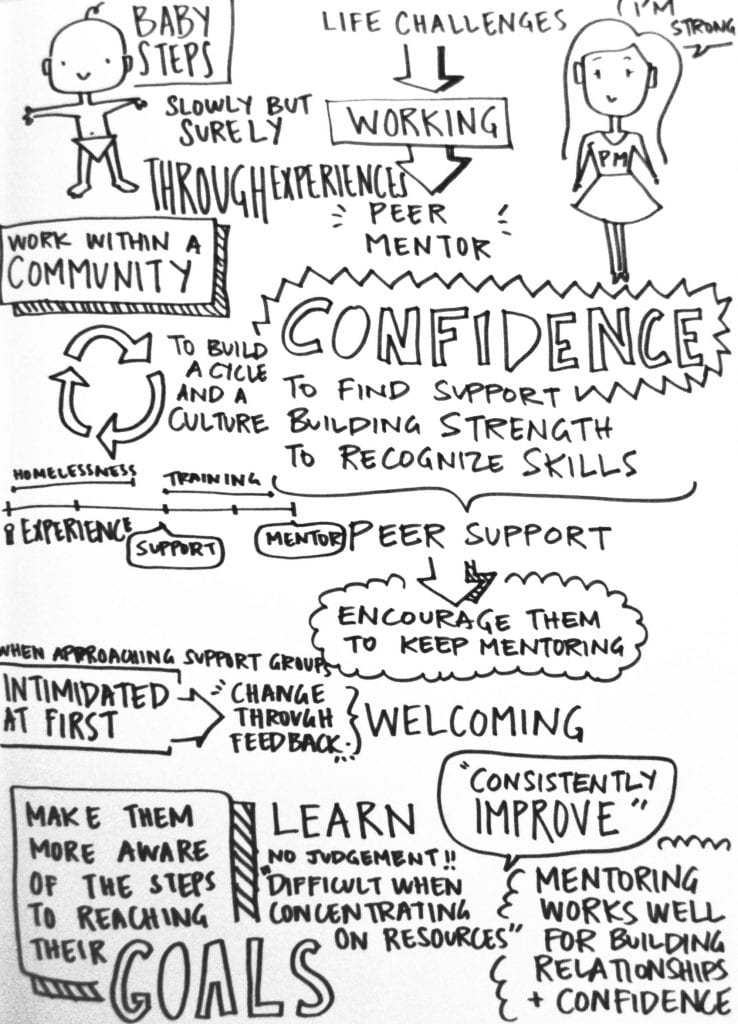 BABY
STEPS
SLOWLY BUT
SURELY
LIFE CHALLENGES
WORKING
THROUGH EXPERIENCES
PEER
MENTOR
I'M
STRONG
PM
WORK WITHIN A
COMMUNITY
TO BUILD
A CYCLE
AND A
CULTURE
CONFIDENCE
TO FIND SUPPORT
BUILDING STRENGTH
TO RECOGNIZE SKILLS
HOMELESSNESS
TRAINING
EXPERIENCE
SUPPORT
MENTOR
PEER SUPPORT
ENCOURAGE THEM
TO KEEP MENTORING
WHEN APPROACHING SUPPORT GROUPS
INTIMIDATED
AT FIRST
CHANGE
THROUGH
FEEDBACK
WELCOMING
MAKE THEM
MORE AWARE
OF THE STEPS
TO REACHING
THEIR
GOALS
LEARN
NO JUDGEMENT!!
"DIFFICULT WHEN
CONCENTRATING
ON RESOURCES"
"CONSISTENTLY
IMPROVE"
MENTORING
WORKS WELL
FOR BUILDING
RELATIONSHIPS
+ CONFIDENCE